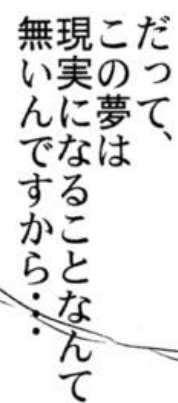 だって、
この夢は
現実になることなんて
無いんですから…